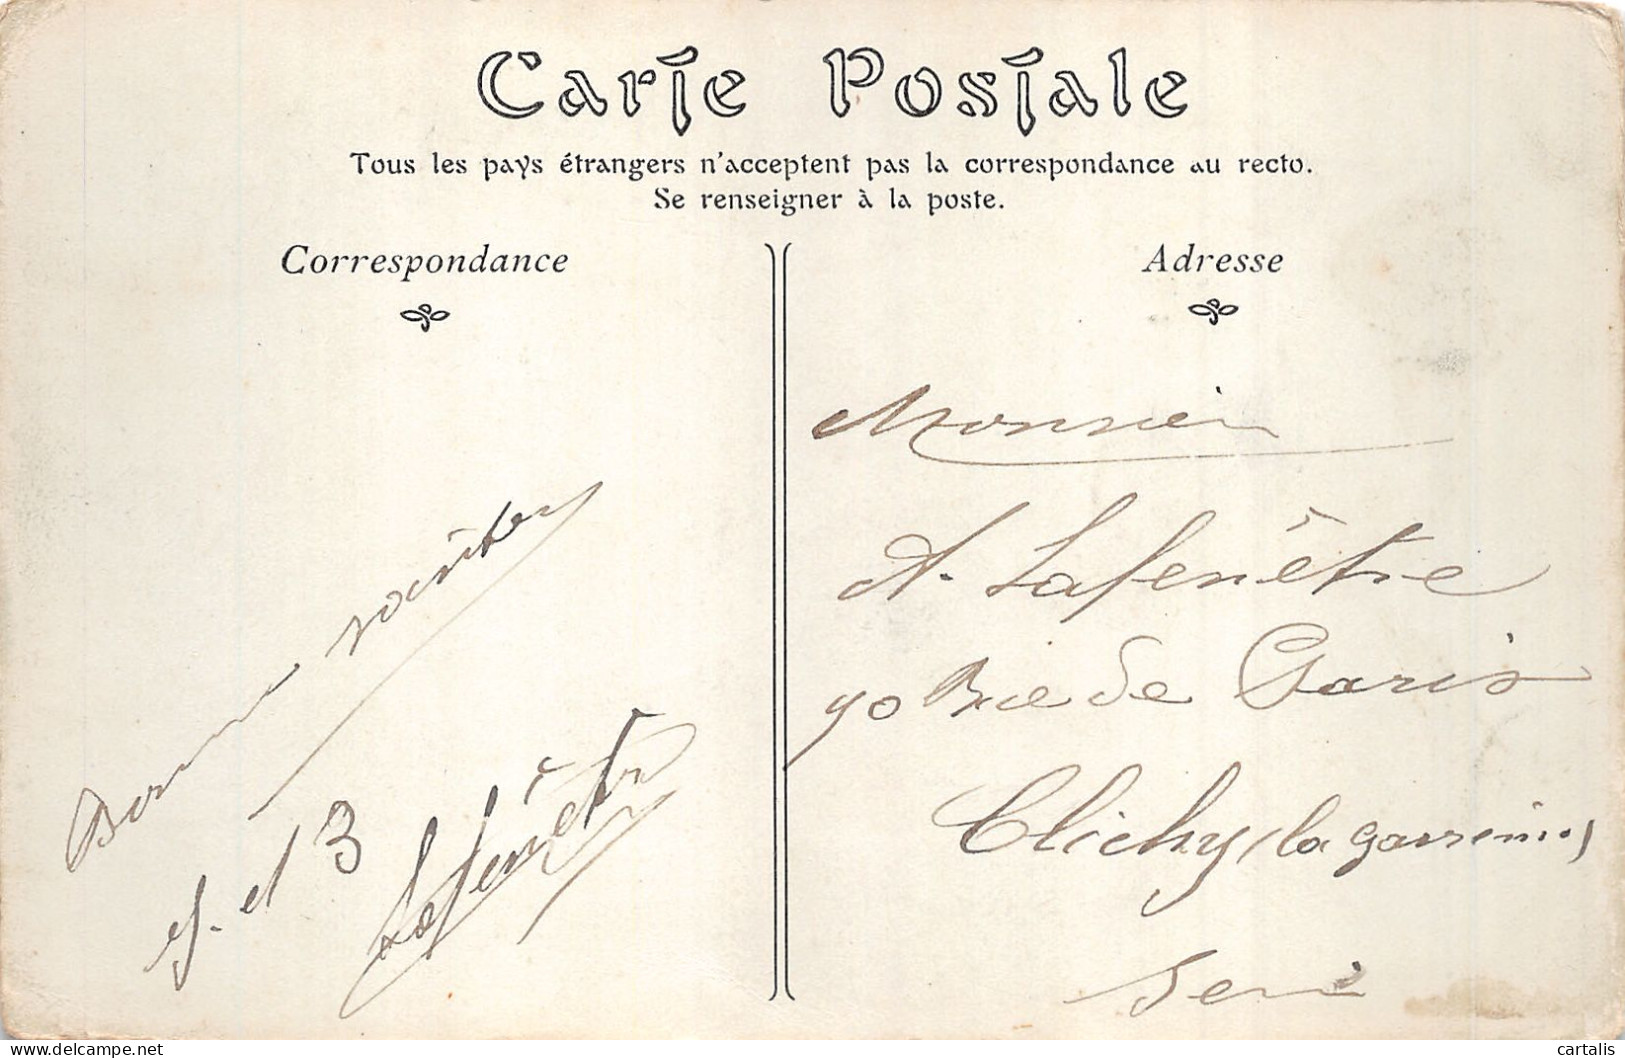 Carte Postale
Tous les pays étrangers n'acceptent pas la correspondance au recto.
Se renseigner à la poste.
Correspondance
Adresse
Bonne
et B
Lafenêtre
Monsieur
A. Lafenêtre
90 Rue de Paris
Clichy (la garenne)
Seine
delcampe.net
cartalis